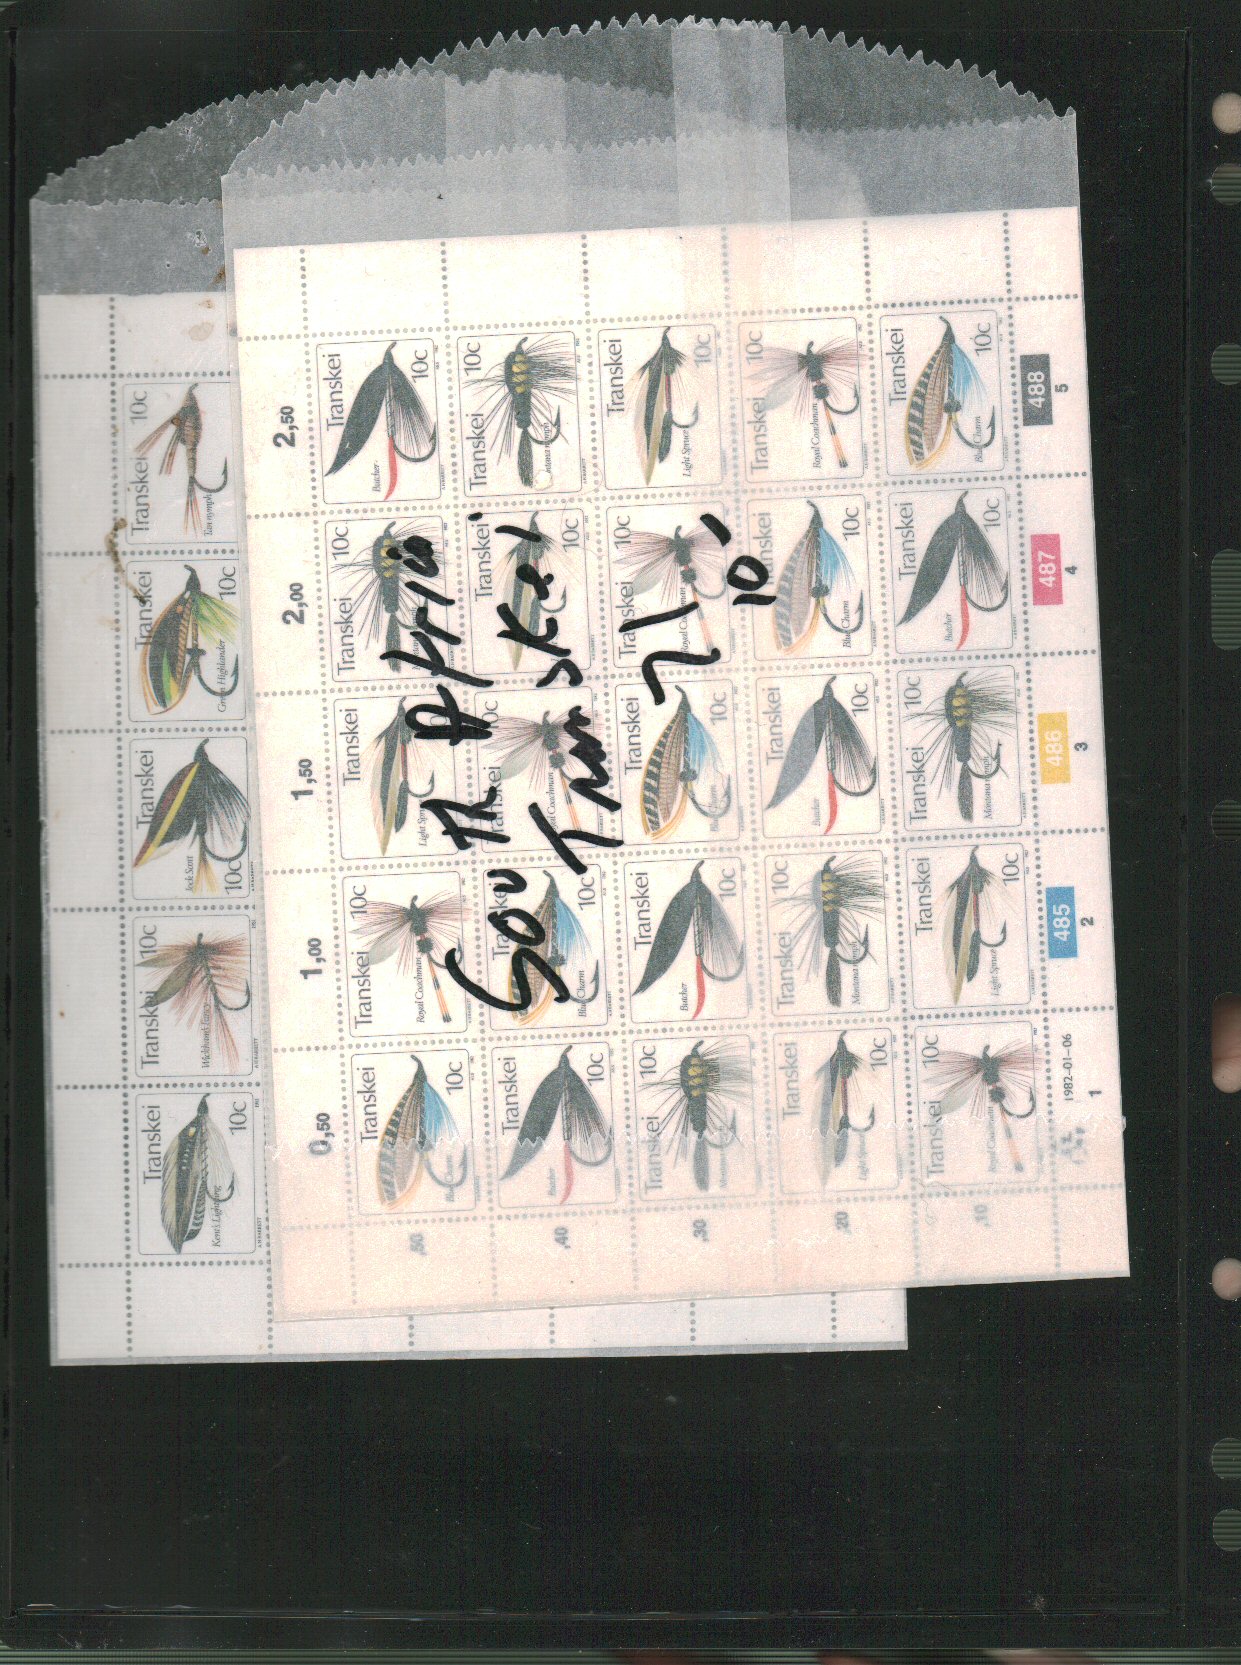 Transkei 10c Kent's Lightning
Transkei 10c Wickham's Fancy
Transkei 10c Jock Scott
Transkei 10c Green Highlander
Transkei 10c Tan nymph
0,50 1,00 1,50 2,00 2,50
,50
Transkei 10c Blue Charm
Transkei 10c Royal Coachman
Transkei 10c Light Spruce
Transkei 10c Montana nymph
Transkei 10c Butcher
,40
Transkei 10c Butcher
Transkei 10c Blue Charm
Transkei Royal Coachman
Transkei 10c
Transkei 10c Montana nymph
,30
Transkei 10c Montana nymph
Transkei 10c Butcher
Transkei 10c Blue Charm
Transkei 10c Royal Coachman
Transkei 10c Light Spruce
,20
Transkei 10c Light Spruce
Transkei 10c Montana nymph
Transkei 10c Butcher
Transkei 10c Blue Charm
Transkei 10c Royal Coachman
,10
Transkei 10c Royal Coachman
Transkei 10c Light Spruce
Transkei 10c Montana nymph
Transkei 10c Butcher
Transkei 10c Blue Charm
1982-01-06 485 486 487 488
1 2 3 4 5
South Africa
Transkei
10